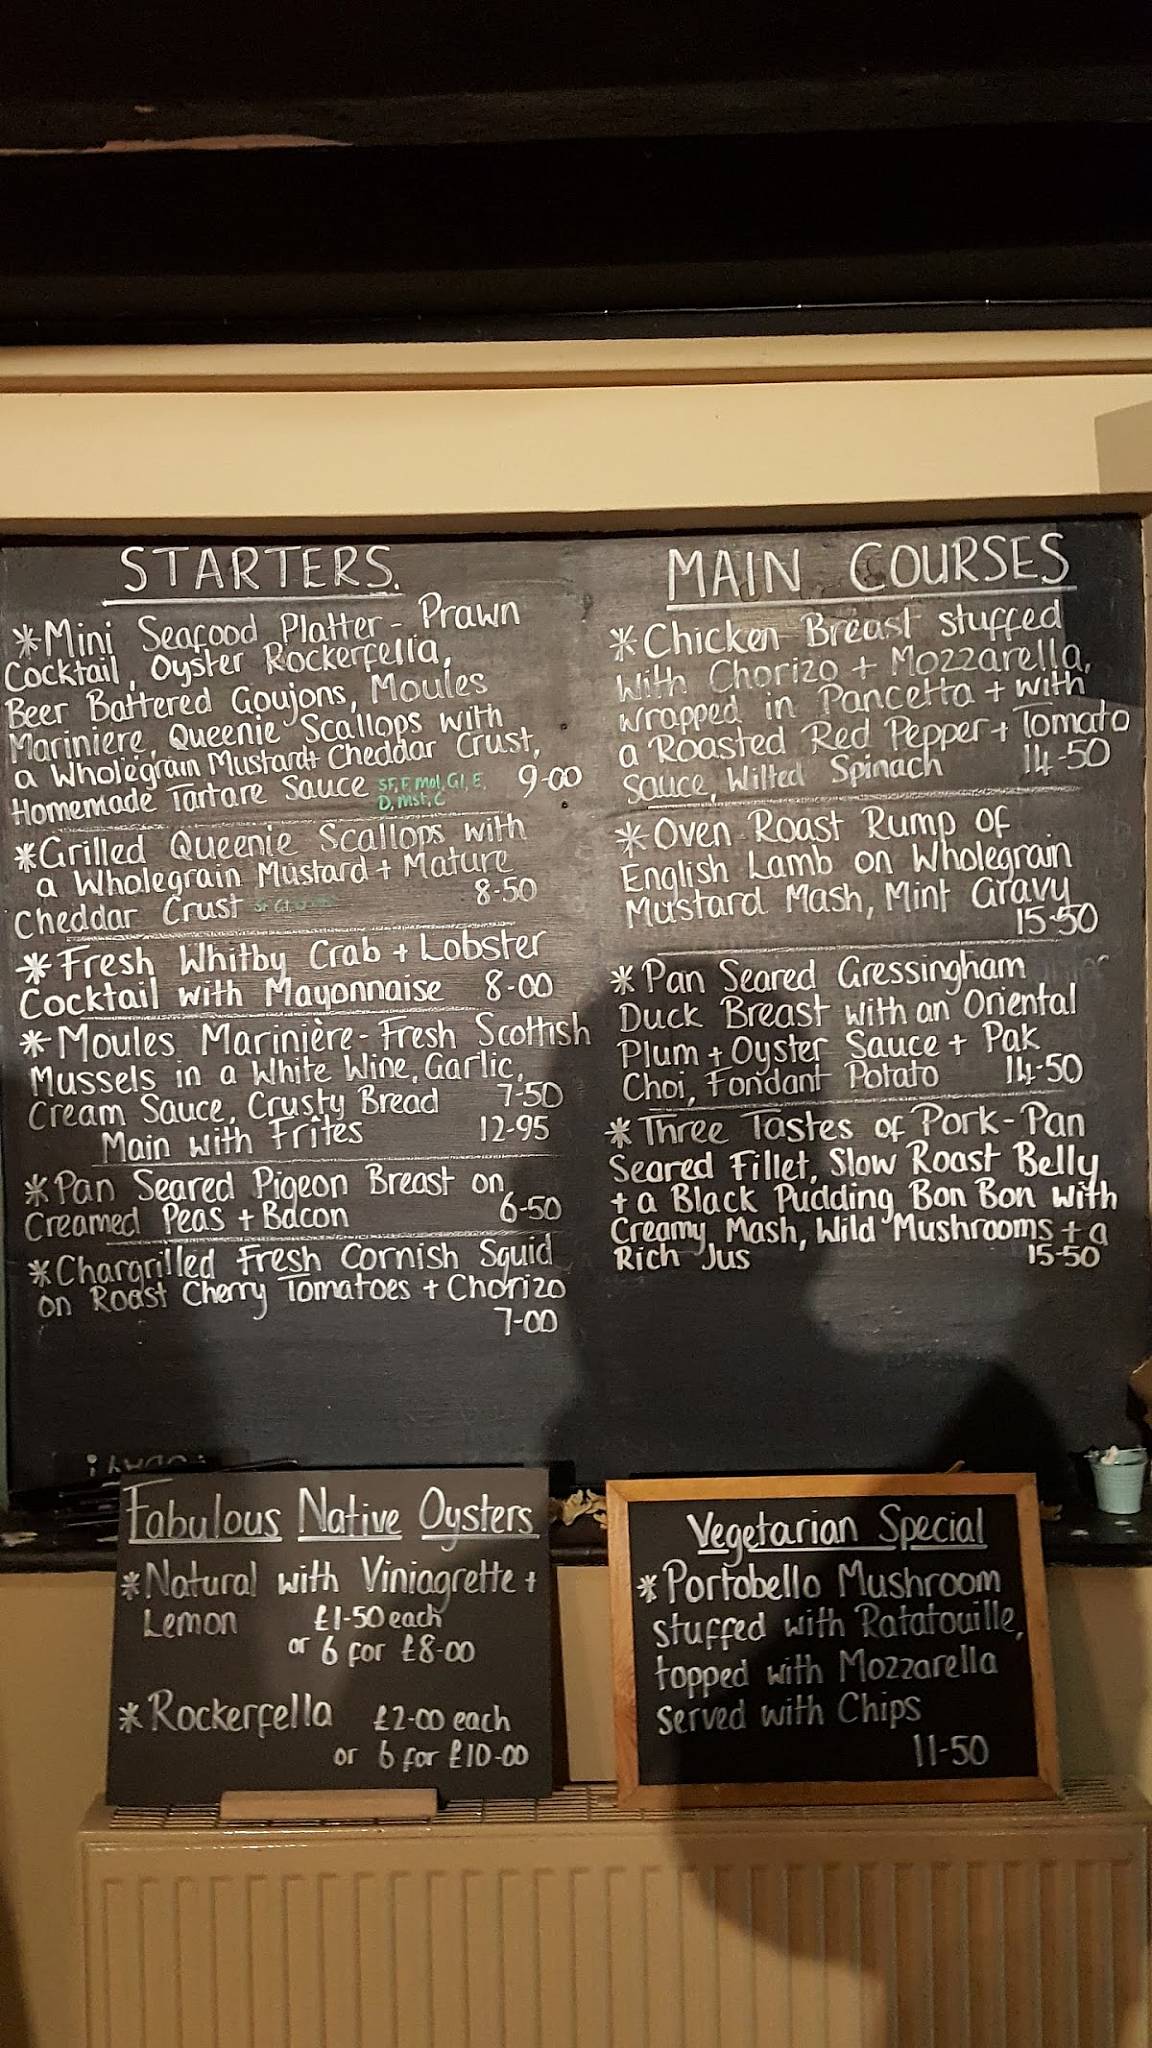 STARTERS.
*Mini Seafood Platter - Prawn
Cocktail, Oyster Rockerfella,
Beer Battered Goujons, Moules
Mariniere, Queenie Scallops with
a Wholegrain Mustard + Cheddar Crust,
Homemade Tartare Sauce SF, F, Mol, Gl, E, 9-00
D, Mst, C
*Grilled Queenie Scallops with
a Wholegrain Mustard + Mature
Cheddar Crust 8-50
*Fresh Whitby Crab + Lobster
Cocktail with Mayonnaise 8-00
*Moules Marinière - Fresh Scottish
Mussels in a White Wine, Garlic,
Cream Sauce, Crusty Bread 7-50
Main with Frites 12-95
*Pan Seared Pigeon Breast on
Creamed Peas + Bacon 6-50
*Chargrilled Fresh Cornish Squid
on Roast Cherry Tomatoes + Chorizo
7-00
MAIN COURSES
*Chicken Breast stuffed
with Chorizo + Mozzarella,
wrapped in Pancetta + with
a Roasted Red Pepper + Tomato
Sauce, Wilted Spinach 14-50
*Oven Roast Rump of
English Lamb on Wholegrain
Mustard Mash, Mint Gravy
15-50
*Pan Seared Gressingham
Duck Breast with an Oriental
Plum + Oyster Sauce + Pak
Choi, Fondant Potato 14-50
*Three Tastes of Pork - Pan
Seared Fillet, Slow Roast Belly
+ a Black Pudding Bon Bon with
Creamy Mash, Wild Mushrooms + a
Rich Jus 15-50
Fabulous Native Oysters
*Natural with Viniagrette +
Lemon £1-50 each
or 6 for £8-00
*Rockerfella £2-00 each
or 6 for £10-00
Vegetarian Special
*Portobello Mushroom
stuffed with Ratatouille,
topped with Mozzarella
Served with Chips
11-50